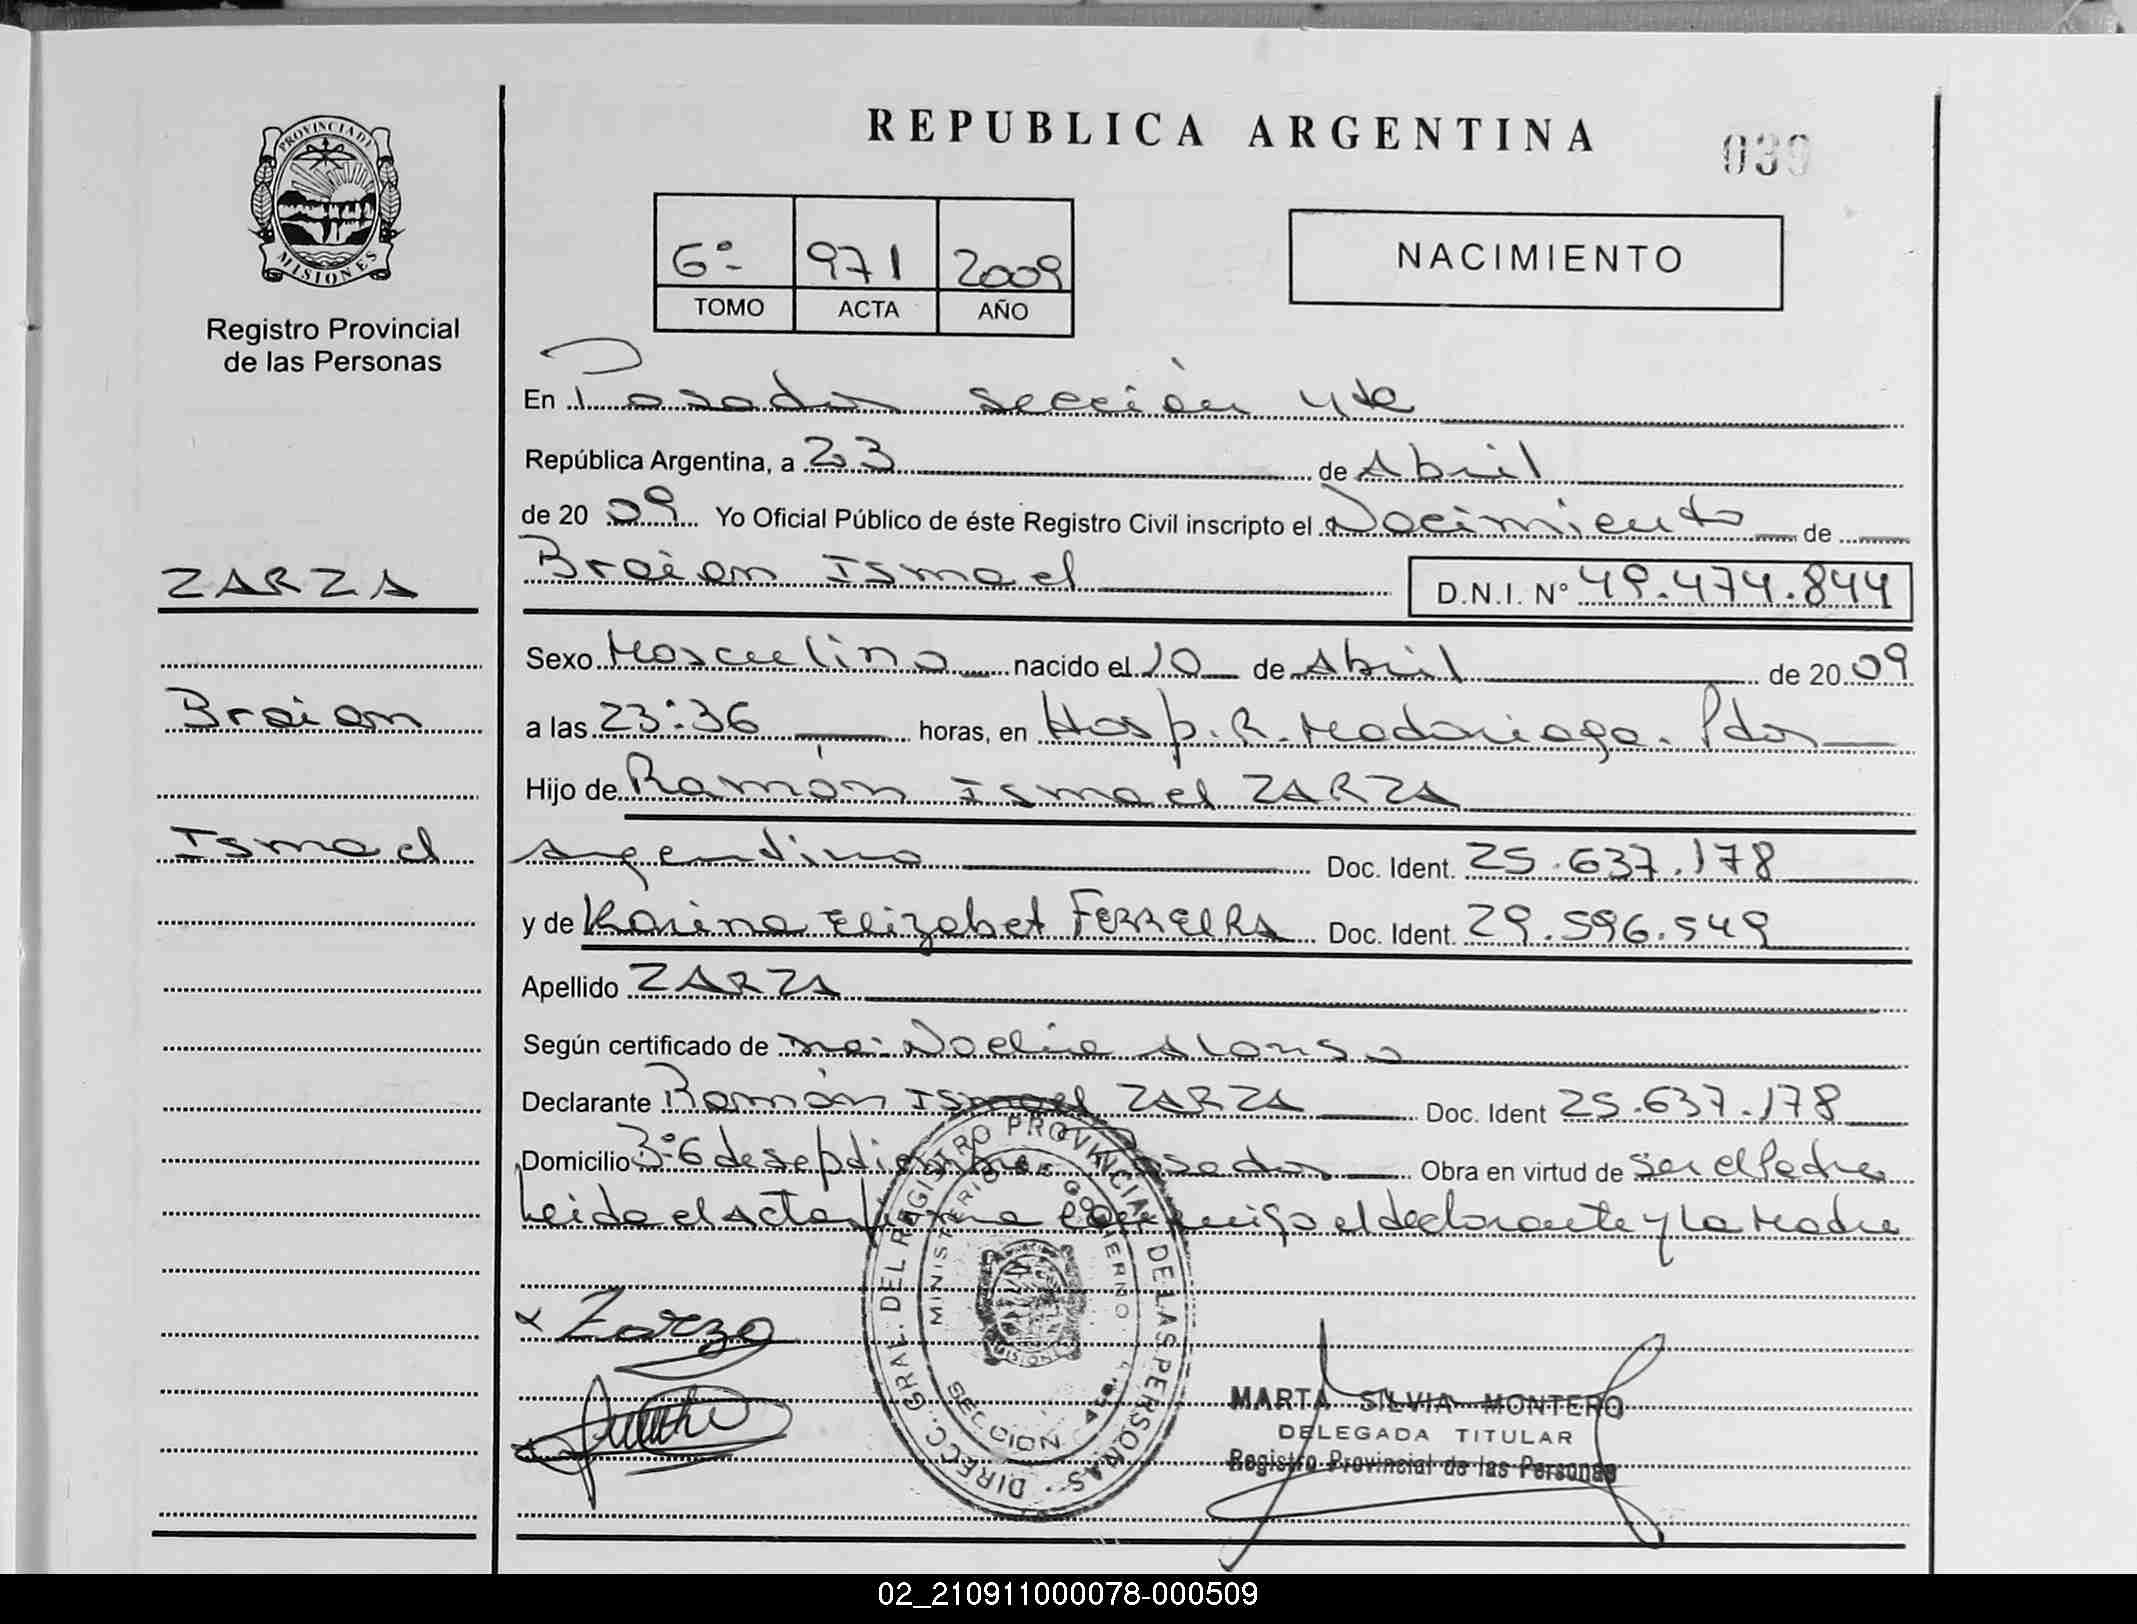 PROVINCIA DE
MISIONES
Registro Provincial
de las Personas
ZARZA
Braian
Ismael
REPUBLICA ARGENTINA
039
6º- 971 2009
TOMO ACTA AÑO
NACIMIENTO
En Posadas sección 4ta
República Argentina, a 23 de Abril
de 2009 Yo Oficial Público de éste Registro Civil inscripto el Nacimiento de
Braian Ismael D.N.I. Nº 49.474.844
Sexo Masculino nacido el 20 de Abril de 2009
a las 23:36 horas, en Hosp. R. Madariaga. Pdas
Hijo de Ramón Ismael ZARZA
Argentino Doc. Ident. 25.637.178
y de Karina Elizabet FERREIRA Doc. Ident. 29.596.549
Apellido ZARZA
Según certificado de Ma. Noelia Alonso
Declarante Ramón Ismael ZARZA Doc. Ident 25.637.178
Domicilio 3:6 de septiembre Posadas Obra en virtud de ser el Padre
Leida el acta firma conmigo el declarante y La Madre
Zarza
DIRECC. GRAL. DEL REGISTRO PROVINCIAL DE LAS PERSONAS
MINISTERIO DE GOBIERNO
SECCION 4ta.
MISIONES
MARTA SILVIA MONTERO
DELEGADA TITULAR
Registro Provincial de las Personas
02_210911000078-000509